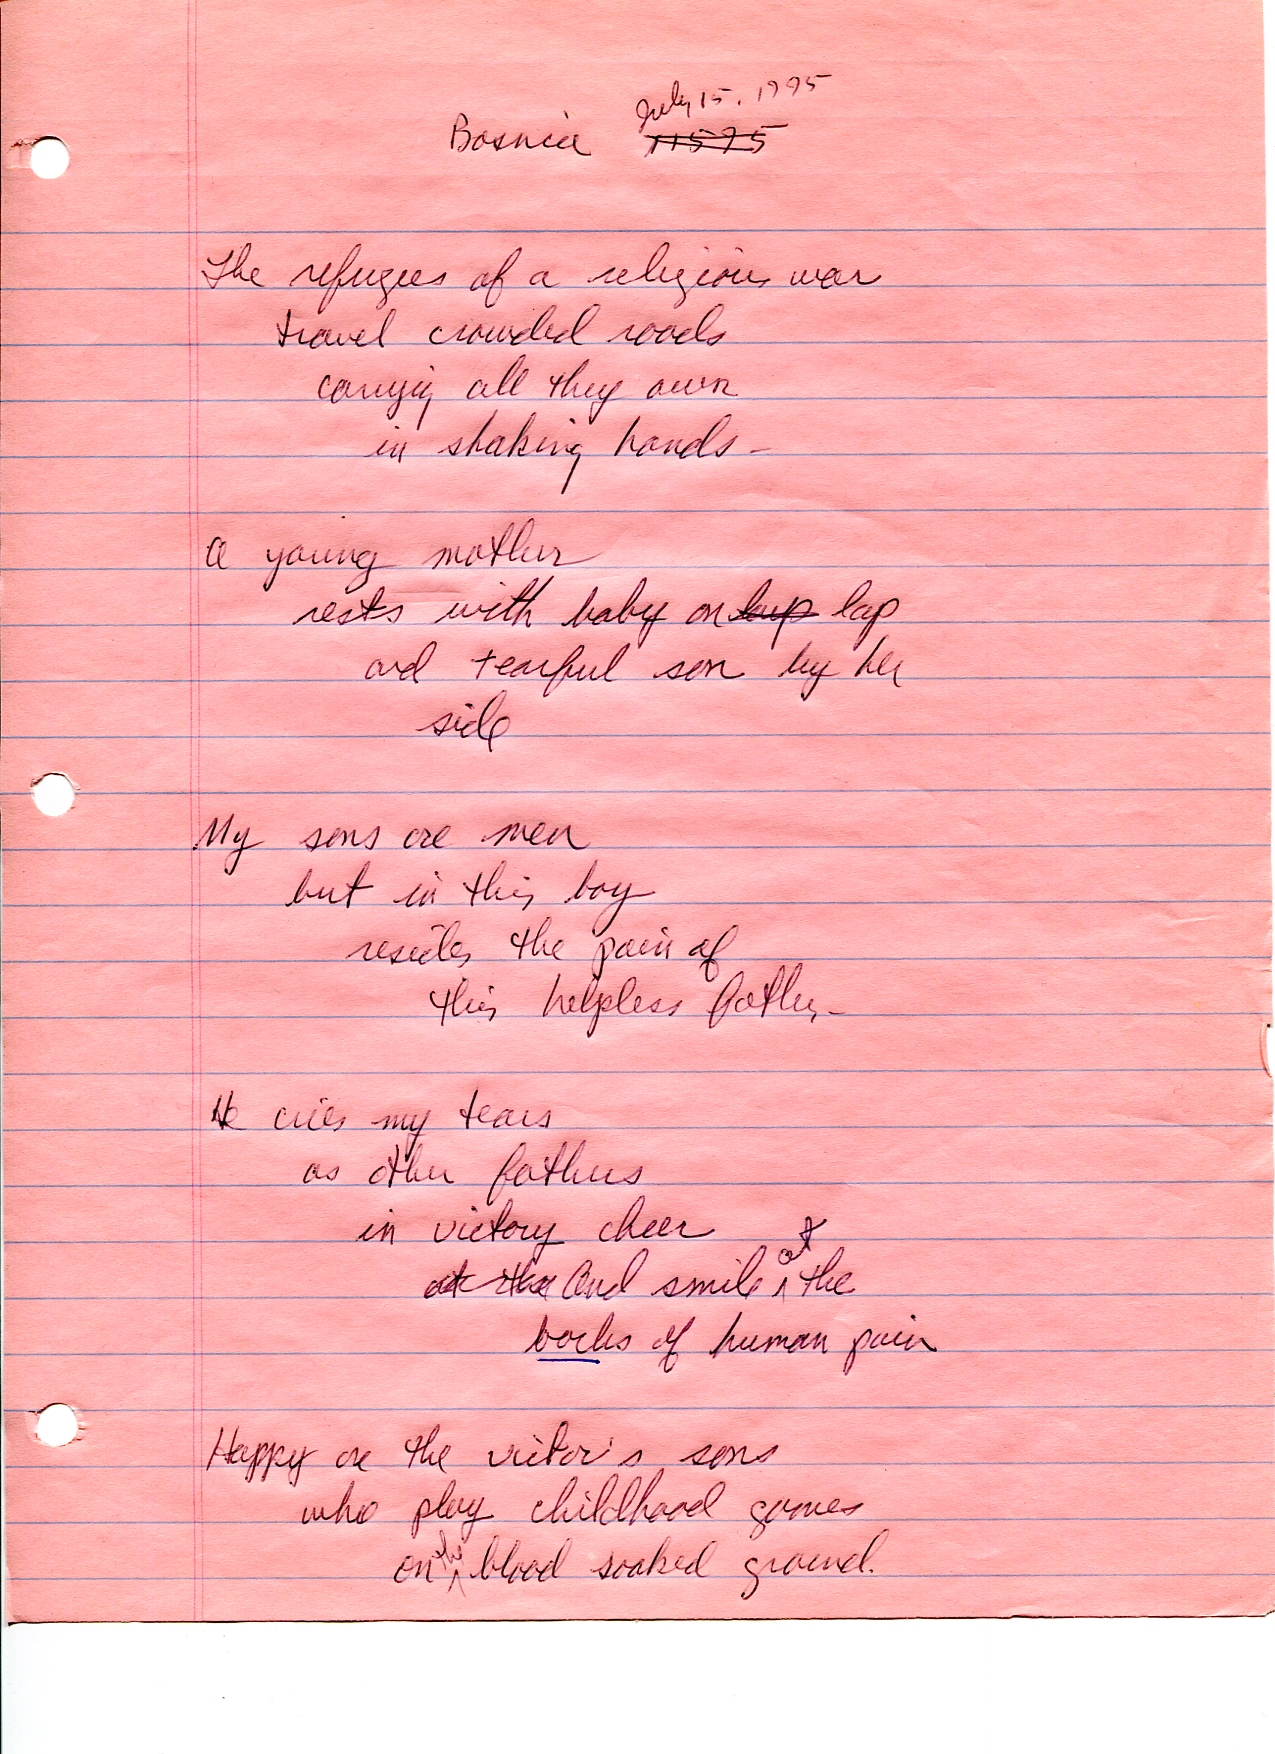 Bosnia July 15, 1995
The refugees of a religious war
travel crowded roads
carrying all they own
in shaking hands -
A young mother
rests with baby on lap
and tearful son by her
side
My sons are men
but in this boy
resides the pain of
this helpless father -
He cries my tears
as other fathers
in victory cheer
And smile at the
backs of human pain
Happy are the victor's sons
who play childhood games
on the blood soaked ground.